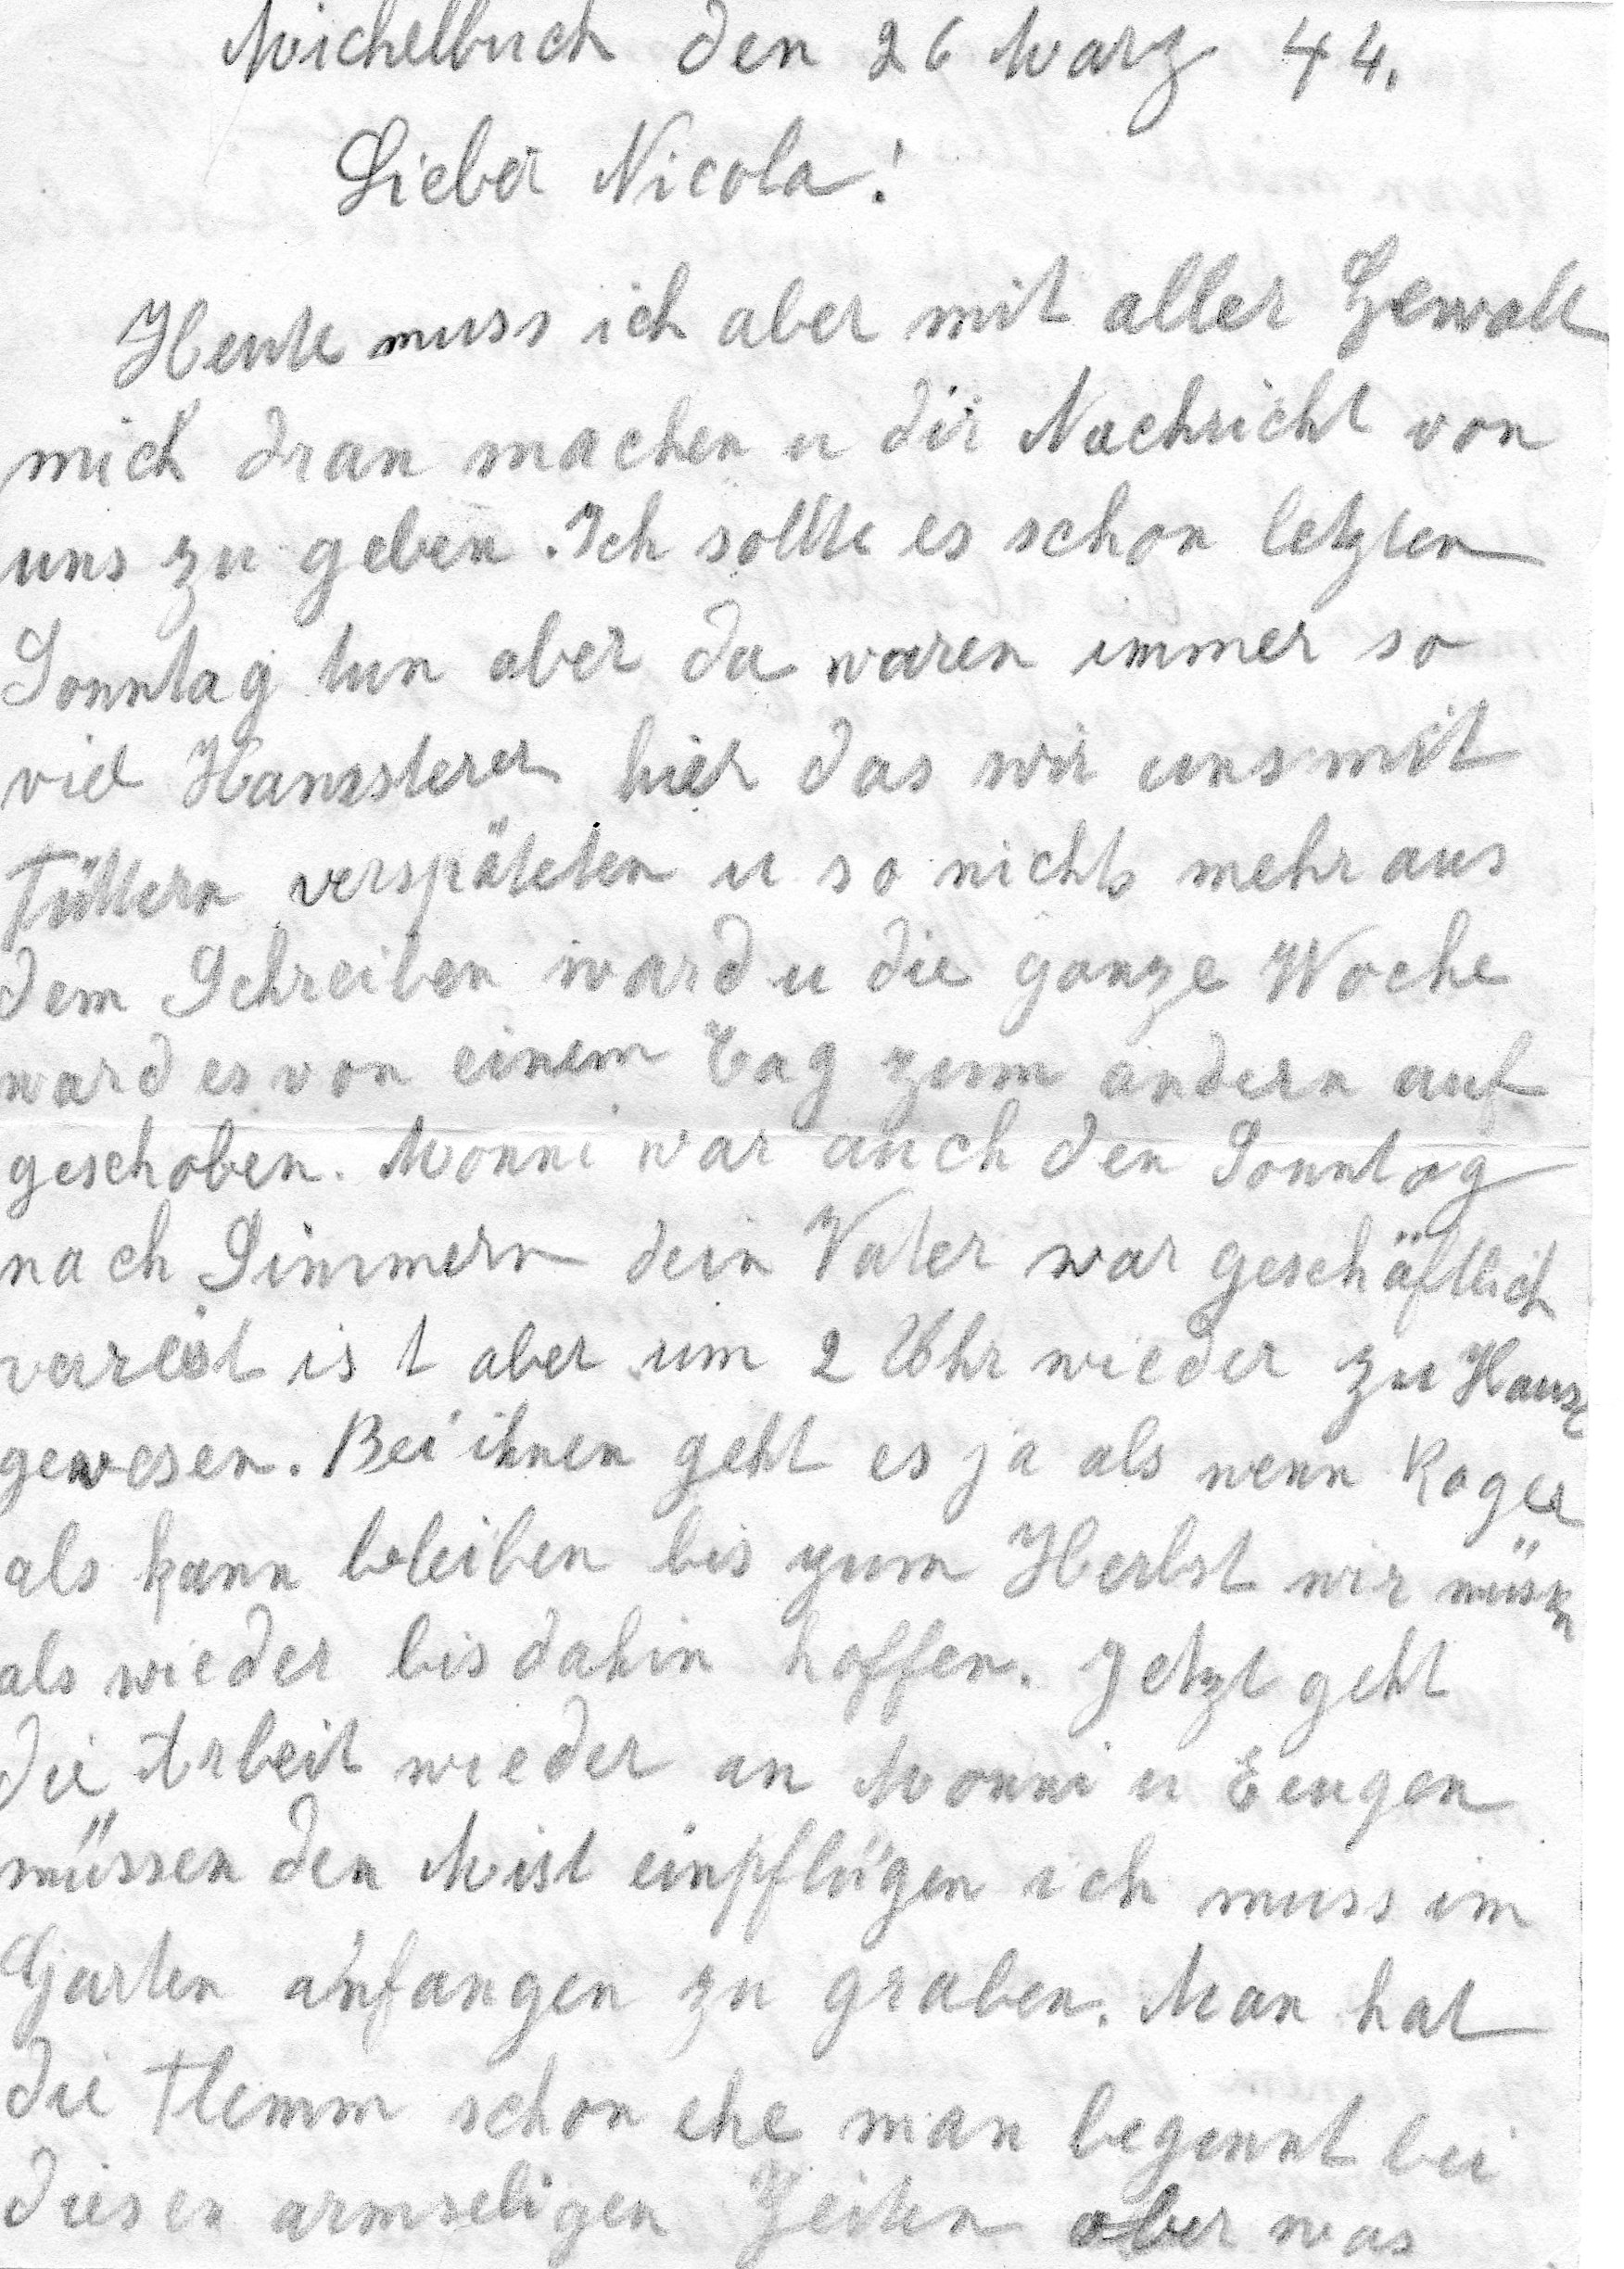 Michelbuch den 26 Marz 44.
Lieber Nicola!
Heute muss ich aber mit aller Gewalt
mich dran machen u dir Nachricht von
uns zu geben. Ich sollte es schon letzten
Sonntag tun aber da waren immer so
viel Hamsterer hier das wir uns mit
Füttern verspäteten u so nichts mehr aus
dem Schreiben ward u die ganze Woche
ward es von einem Tag zum andern auf
geschoben. Monni war auch den Sonntag
nach Simmern dein Vater war geschäftlich
vereist ist aber um 2 Uhr wieder zu Hause
gewesen. Bei ihnen geht es ja als wenn Roger
als kann bleiben bis zum Herbst wir müssen
als wieder bis dahin hoffen. Jetzt geht
die Arbeit wieder an Monni u Eugen
müssen den Mist einpflügen ich muss im
Garten anfangen zu graben. Man hat
die Flemm schon ehe man begennt bei
diesen armseligen Zeiten aber was